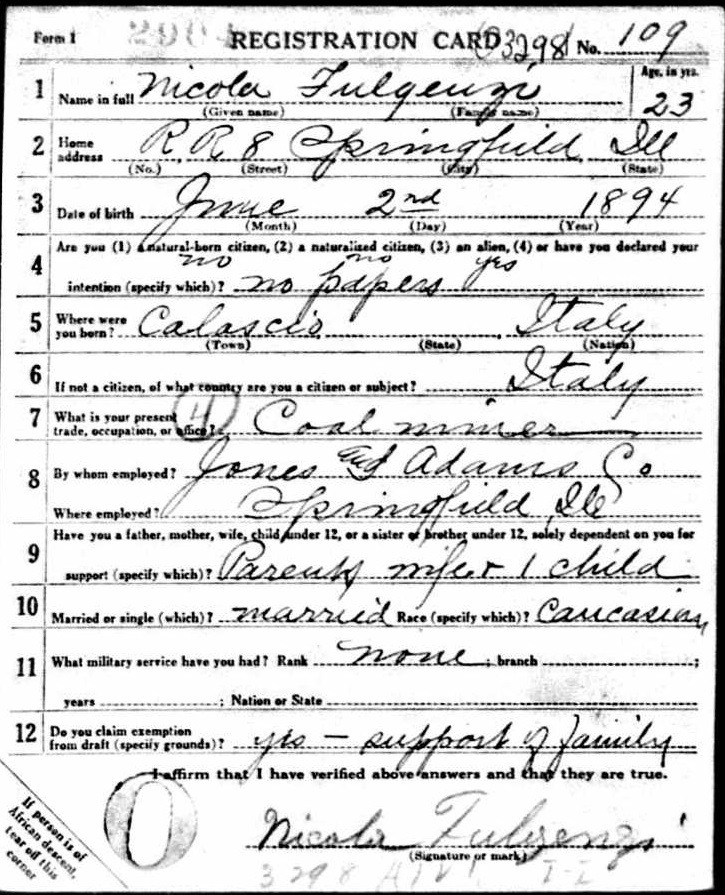 Form 1 2904 REGISTRATION CARD 3298 No. 109
1 Name in full Nicola Fulgenzi Age, in yrs. 23
(Given name) (Family name)
2 Home address R R 8 Springfield Ill
(No.) (Street) (City) (State)
3 Date of birth June 2nd 1894
(Month) (Day) (Year)
4 Are you (1) a natural-born citizen, (2) a naturalized citizen, (3) an alien, (4) or have you declared your
no no yes
intention (specify which)? no papers
5 Where were you born? Calascio Italy
(Town) (State) (Nation)
6 If not a citizen, of what country are you a citizen or subject? Italy
7 What is your present trade, occupation, or office? 4 Coal miner
8 By whom employed? Jones and Adams Co
Where employed? Springfield Ill
9 Have you a father, mother, wife, child under 12, or a sister or brother under 12, solely dependent on you for
support (specify which)? Parents wife + 1 child
10 Married or single (which)? married Race (specify which)? Caucasian
11 What military service have you had? Rank none ; branch ;
years ; Nation or State
12 Do you claim exemption from draft (specify grounds)? yes – support of family
I affirm that I have verified above answers and that they are true.
O
Nicola Fulgenzi
(Signature or mark)
3298
If person is of
African descent,
tear off this
corner